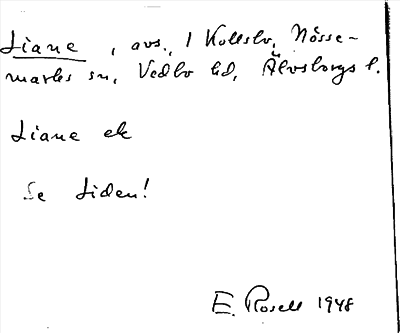 Liane, avs., 1 Kollsbo, Nösse-
marks sn, Vedbo hd, Älvsborgs l.
Liane ek
Se Liden!
E. Rosell 1948